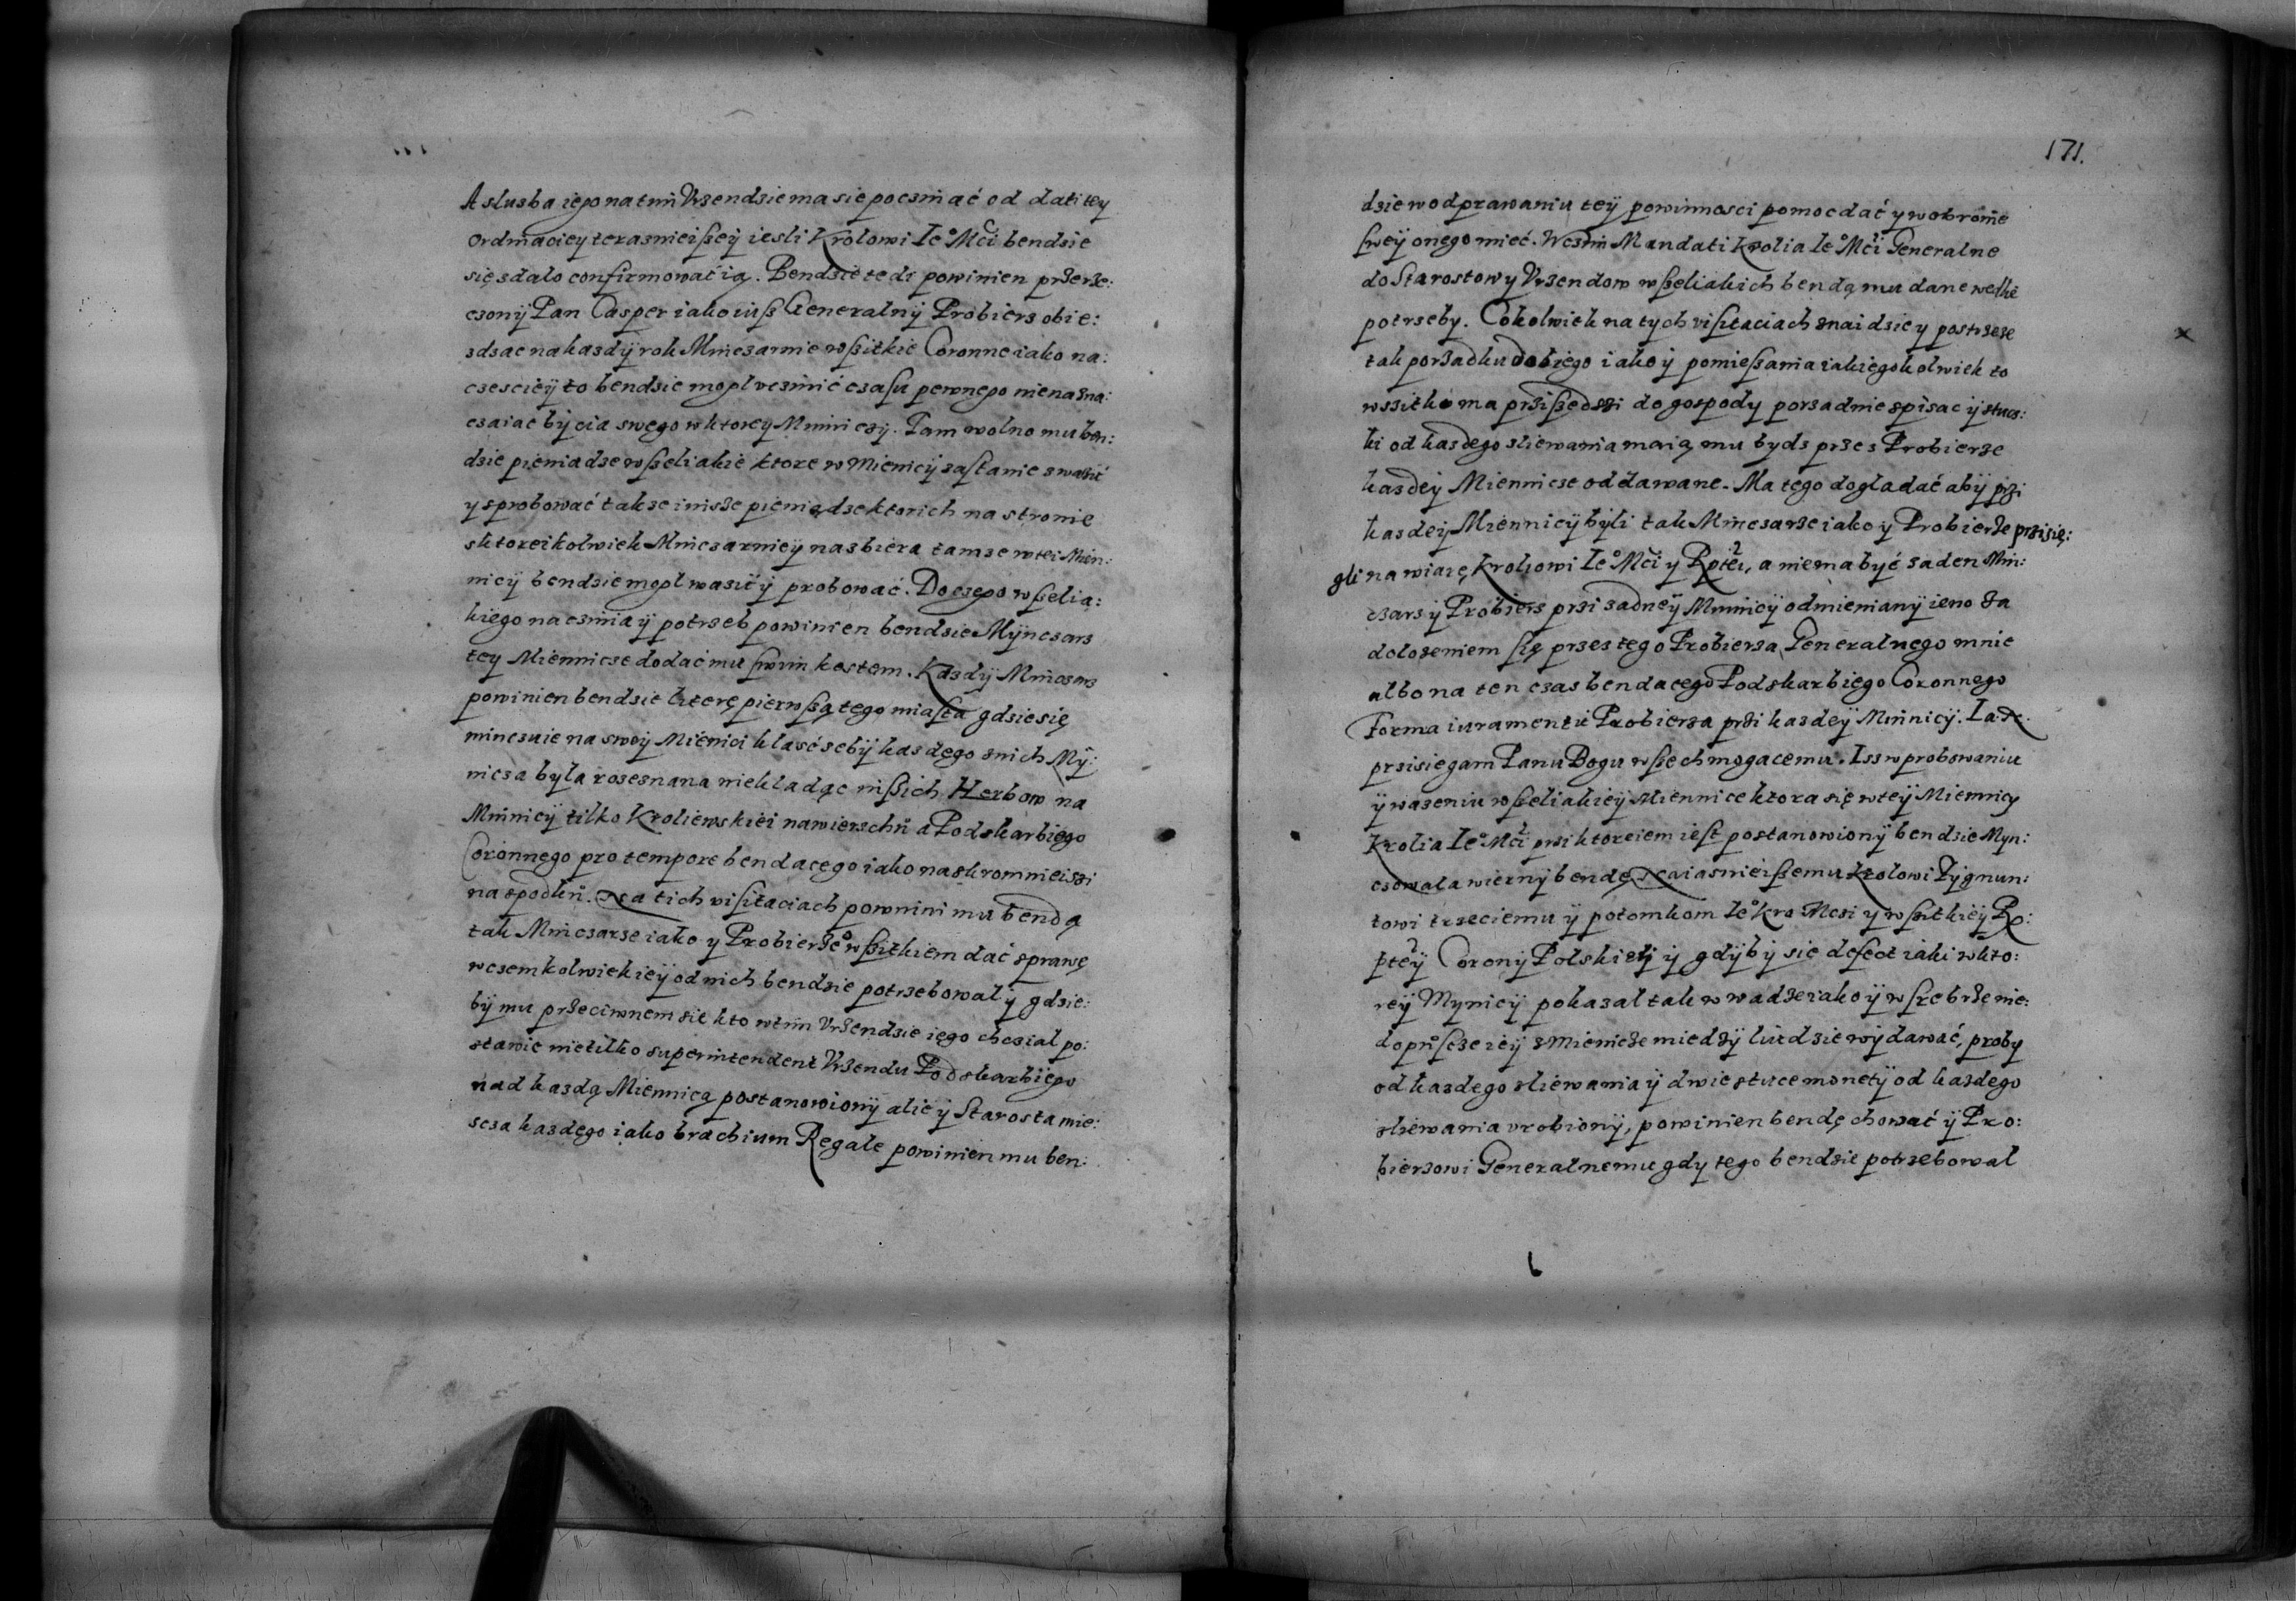 A slusba iego na tim Vrzendsie ma sie pocsinać od dati tey
ordinaciey terasnieißeÿ iesli Krolowi Ie° Mci bendsie
się sdalo confirmować ią. Bendsie tedi powinien przerze:
csonÿ Pan Casper iako iuß Generalnÿ Probiers obie:
sdsac na kasdÿ rok Mincsarnie wßitkie Coronne iako na:
csescieÿ to bendsie mogl vcsinić csasu pewnego nienazna:
csaiac bÿcia swego w ktorey Minniczÿ. Tam wolno mu ben:
dsie pieniadse wßeliakie ktore w Miennicÿ sastanie swasić
y sprobować takse inisze pieniądse ktorich na stronie
s ktoreikolwiek Mincsarnieÿ nasbiera tamse w tei Mien:
nicÿ bendsie mogl wasić ÿ probować. Do czego wßelia:
kiego nacsinia ÿ potrseb powinien bendsie Mÿncsars
tey Miennicse dodać mu swim kostem. Kasdÿ Mincsars
powinien bendsie literę pierwßą tego miasta gdsie się
mincsuie na swoÿ Miennici klasć sebÿ kasdego snich Mÿ:
nicsa byla rosesnana niekladąc inßich Herbow na
Minnicÿ tilko Kroliewskiei na wierschů a Podskarbiego
Coronnego pro tempore bendacego iako naskromnieiszi
na spodků. Na tich visitaciach powinni mu bendą
tak Mincsarse iako y Probierze o wßitkiem dać sprawę
w csemkolwiek ieÿ od nich bendsie potrsebowal ÿ gdsie:
bÿ mu przeciwnem sie kto w tim Vrzendsie iego chcial po:
stawic nietilko superintendent Vrzendu Podskarbiego
nad kasdą Miennicą postanowionÿ alie ÿ Starosta mie:
scsa kasdego iako brachium Regale powinien mu ben:
171.
dsie w odprawaniu teÿ powinnosci pomoc dać y w obronie
sweÿ onego mieć. W csim Mandati Krolia Ie° Mci Generalne
do Starostow y Vrzendow wßeliakich bendą mu dane wedlie
potrseby. Cokolwiek na tych visitaciach snaidsie y postrseze
tak porzadku dobrego iako ÿ pomießania iakiegokolwiek to
wssitko ma prziszedszi do gospody porsadnie spisac ÿ stuc:
ki od kasdego sliewania maią mu byds przes Probierze
kasdeÿ Miennicse oddawane. Ma tego dogladać abÿ przi
kasdeÿ Miennicÿ bÿli tak Mincsarze iako y Probierze przisię:
gli na wiarę Krolowi Ie° Mci y Rptei, a niema być saden Min:
csars ÿ Probiers przi sadneÿ Minnicÿ odmienianÿ ieno za
doloseniem się przes tego Probierza Generalnego mnie
albo na ten csas bendacego Podskarbiego Coronnego
Forma iuramentu Probierza przi kasdeÿ Minnicÿ. Ia N.
przisiegam Panu Bogu wßechmogacemu. Iss w probowaniu
ÿ waseniu wßeliakieÿ Miennice ktora się w teÿ Miennicy
Krolia Ie° Mci przi ktoreiem iest postanowionÿ bendsie Myn:
csowala wiernÿ bendę Naiasnieißemu Krolowi Zÿgmun:
towi trzeciemu ÿ potomkom Ie° Kro Mcsi y wßitkieÿ Rs:
pteÿ Corony Polskieÿ ÿ gdÿbÿ sie defect iaki w kto:
reÿ Mynicÿ pokasal tak w wadze iako ÿ w srebrze nie:
dopůscze ieÿ s Miennicze miedzÿ liudsie wÿdawać, proby
od kasdego sliewania ÿ dwie stuce monetÿ od kasdego
sliewania vrobionÿ, powinien bendę chować ÿ Pro:
bierzowi Generalnemu gdy tego bendsie potrsebowal